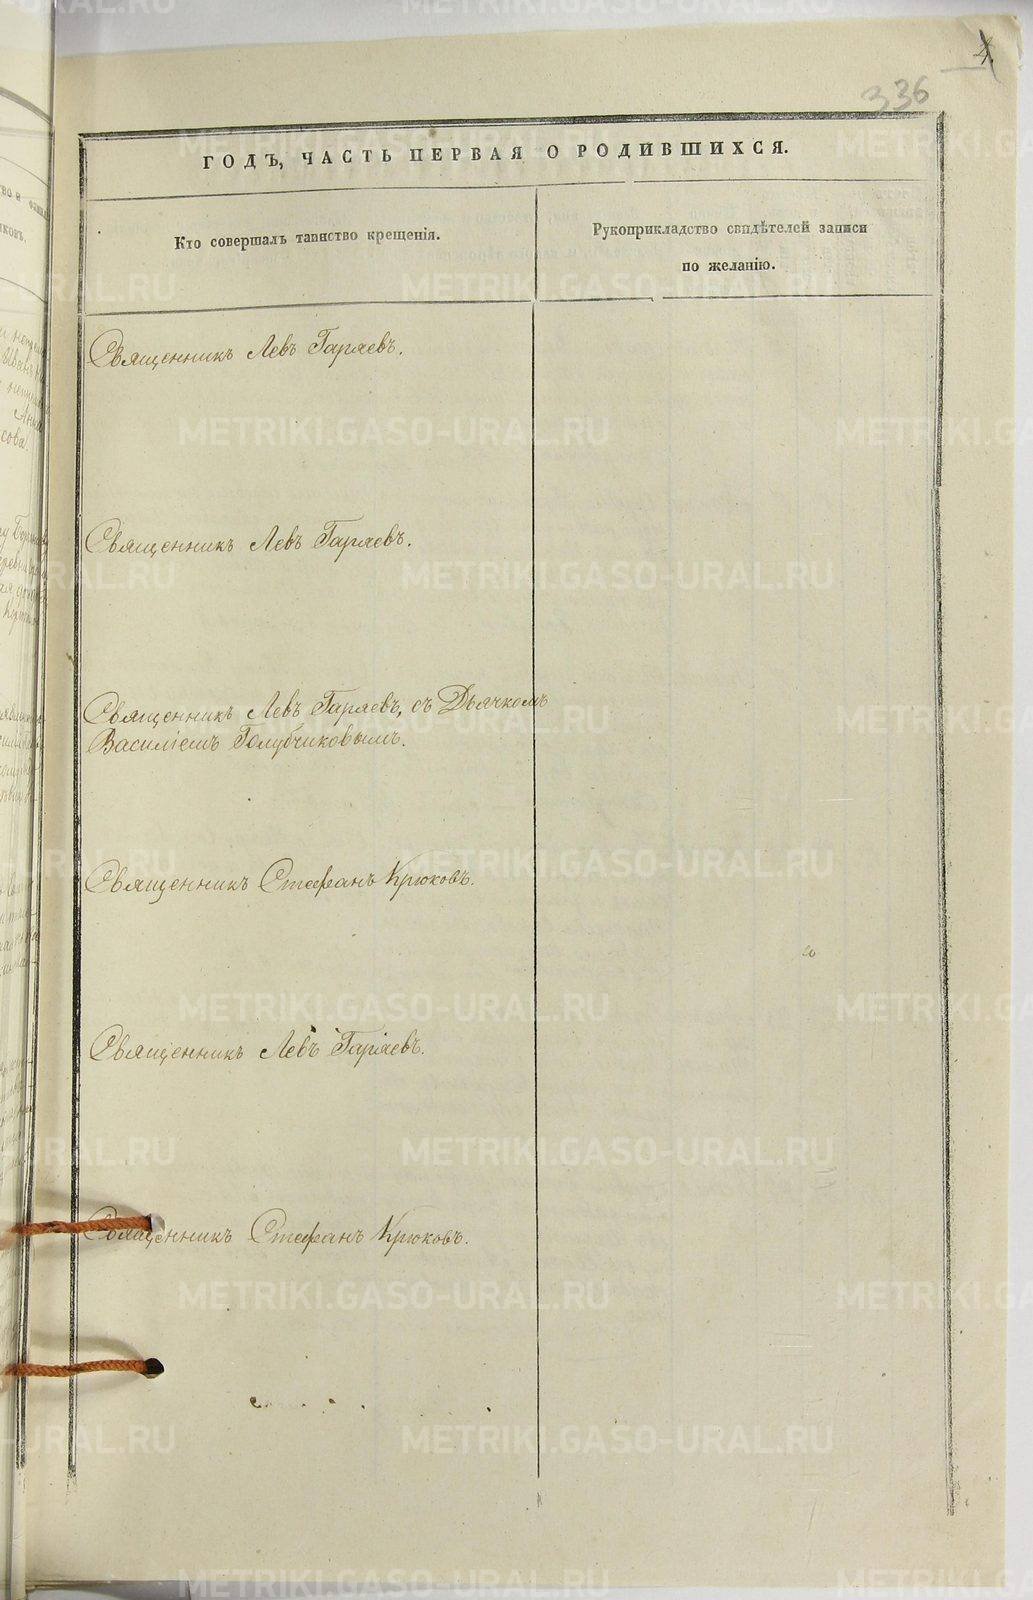 4.
336
ГОДЪ, ЧАСТЬ ПЕРВАЯ О РОДИВШИХСЯ.
Кто совершалъ таинство крещенія.
Рукоприкладство свидѣтелей записи
по желанію.
Священникъ Левъ Гаряевъ.
Священникъ Левъ Гаряевъ.
Священникъ Левъ Гаряевъ, съ Дьячкомъ
Василіемъ Голубчиковымъ.
Священникъ Стефанъ Крюковъ.
Священникъ Левъ Гаряевъ.
Священникъ Стефанъ Крюковъ.
METRIKI.GASO-URAL.RU